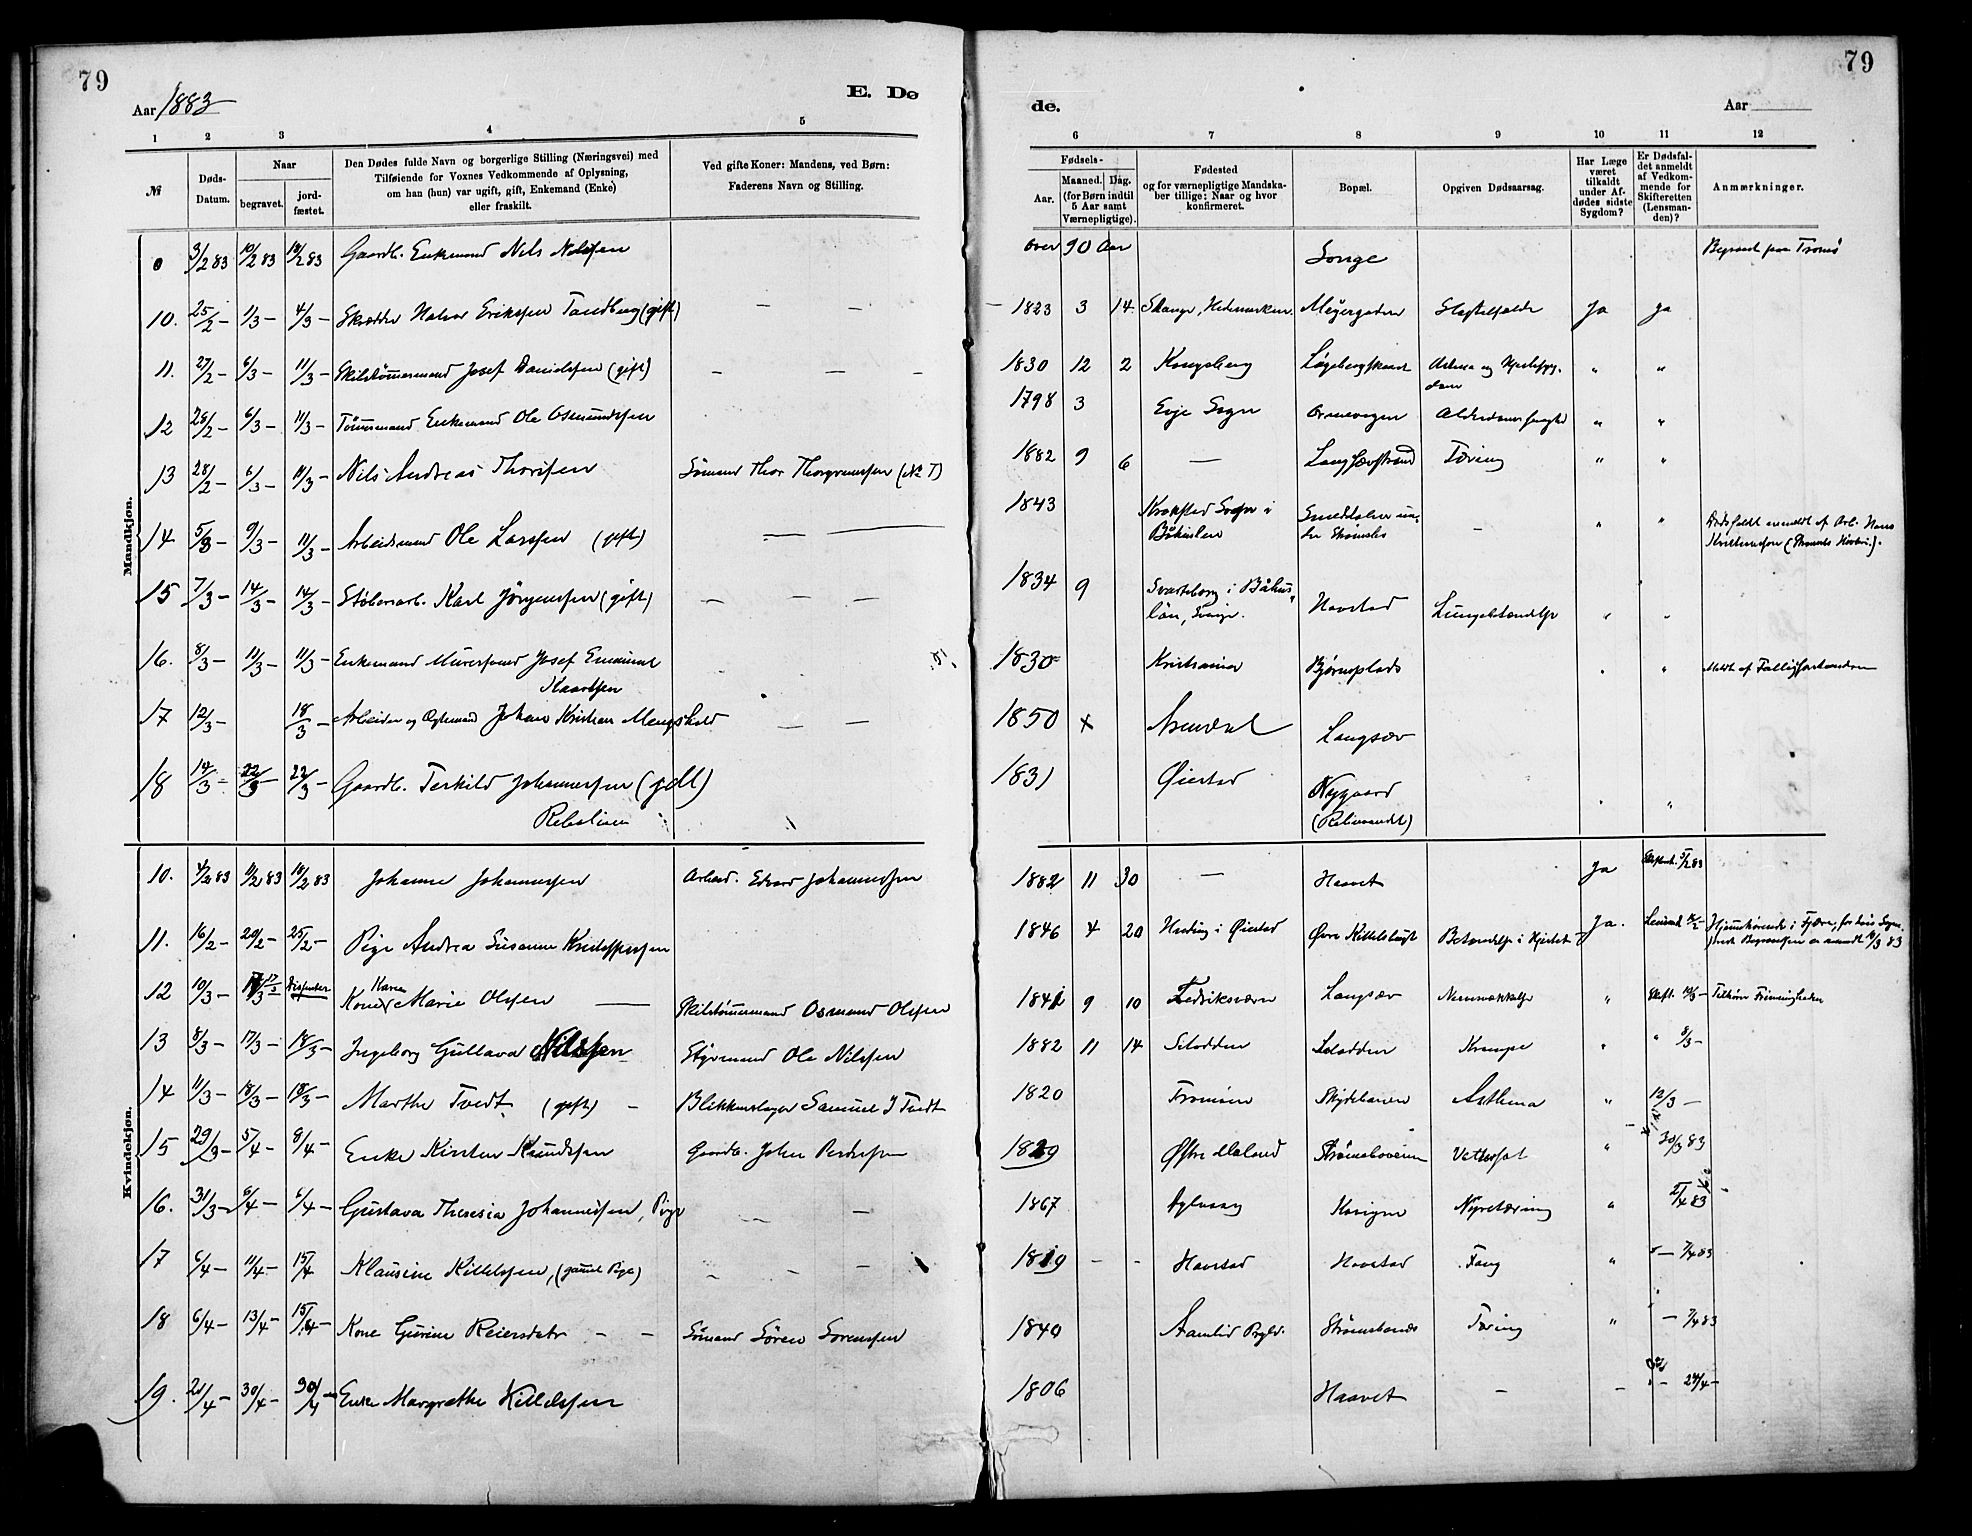 79
Aar 1883
E. Dø
de.
Aar
79
1 2 3 4 5 6 7 8 9 10 11 12
№
Døds-Datum.
Naar
begravet.
jord-fæstet.
Den Dødes fulde Navn og borgerlige Stilling (Næringsvei) med
Tilføiende for Voxnes Vedkommende af Oplysning,
om han (hun) var ugift, gift, Enkemand (Enke)
eller fraskilt.
Ved gifte Koner: Mandens, ved Børn:
Faderens Navn og Stilling.
Fødsels-
Aar.
Maaned. Dag.
(for Børn indtil
5 Aar samt
Værnepligtige).
Fødested
og for værnepligtige Mandska-
ber tillige: Naar og hvor
konfirmeret.
Bopæl.
Opgiven Dødsaarsag.
Har Læge
været
tilkaldt
under Af-
dødes sidste
Sygdom?
Er Dødsfal-
det anmeldt
af Vedkom-
mende for
Skifteretten
(Lensman-
den)?
Anmærkninger.
Mandkjøn.
0 3/2 83 10/2 83 18/2 83 Gaardb. Enkemand Nils Nilssen over 90 Aar Songe Begravet paa Tromø
10. 25/2 – 1/3 – 4/3 – Skrædder Halvor Erikssen Tandberg (gift) — — 1823 3 14 Stange, Hedemarken Meyergaden Ja Ja
11. 27/2 – 6/3 – 11/3 – Skibstømmermand Josef Danielssen (gift) – – – 1830 12 2 Kongsberg Astma og Hjertesyg-
dom " "
12 28/2 – 6/3 – 11/3 – Tømmermand Enkemand Ole Osmundssen 1798 3 Evje Sogn Alderdomssvaghed " "
13 28/2 – 6/3 – 11/3 – Nils Andreas Thorssen Sømand Thor 1882 9 6 — Langsævstrand Tæring " "
14 5/3 – 9/3 – 11/3 – Arbeidsmand Ole Larssen (gift) — — 1843 Sogn i
Båhuslen – " " Dødsfaldet anmeldt af Arb. Hans
15 7/3 – 14/3 – 14/3 – Støberiarb. Karl Jörgenssen (gift) – – – 1834 9 Svarteborg i Båhus-
län, Sverige. Havstad Lungebetændelse " "
16. 8/3 – 11/3 – 11/3 – Enkemand Murersvend Josef Emanuel
1830 Kristiania Bjørnsplads " " Meldt af Fattigforstanderen
17 12/3 – 18/3 – Arbeider og Ægtemand Johan Kristian — — 1850 x Arendal Langsæv
18 14/3 – 22/3 – 22/3 – Gaardb. Terkild Johannessen (gift)
1831 Øiestad Nygaard " "
Kvindekjøn.
10. 4/2 83 11/2 83 18/2 83 Johanne Johannessen Arbeid. Edvard Johannessen 1882 11 30 — Haavet Ja 5/2 83
11. 16/2 – 20/2 – 25/2 – Pige Andrea Susanne Kristoffersen 1846 4 20 i Øiestad Øvre Betændelse i Hjertet Ja.
12 10/3 – 17/3 Dispenser Kone Karen Marie Olssen — Skibstømmermand Osmund Olssen 1841 9 10 Fredriksværn Langsæv " Skift. 12/3 –
13 8/3 – 17/3 – 18/3 – Ingeborg Gustava Nilssen Styrmand Ole Nilssen 1882 11 14 Krampe " " 8/3 –
14 11/3 – 18/3 – 18/3 – Marthe Tvedt (gift) – Blikkenslager Samuel J Tvedt 1820 Tromøen Skydebanen Asthma " 12/3 –
15 29/3 – 5/4 – 8/4 – Enke Kirsten Knudssen Gaardb. John Pederssen 1829 Østre Moland Vattersot " 30/3 83
16. 31/3 – 6/4 – 6/4 – Gustava Theresia Johannessen, Pige — — 1867 Nyretæring " 2/4 83
17 6/4 – 11/4 – 15/4 Klausine Kittelssen, (gammel Pige) – – – 1819 – – Havstad Havstad Tæring " – 7/4 83
18 6/4 – 13/4 – 15/4 – Kone Gurine Reiersdatr – – Sømand Sören Sørenssen 1840 Aamlid Strømsbonæs Tæring " – 7/4 83
19. 21/4 – 30/4 – 30/4 – Enke Margrethe Kittelssen 1806 Haavet – – 24/4 –